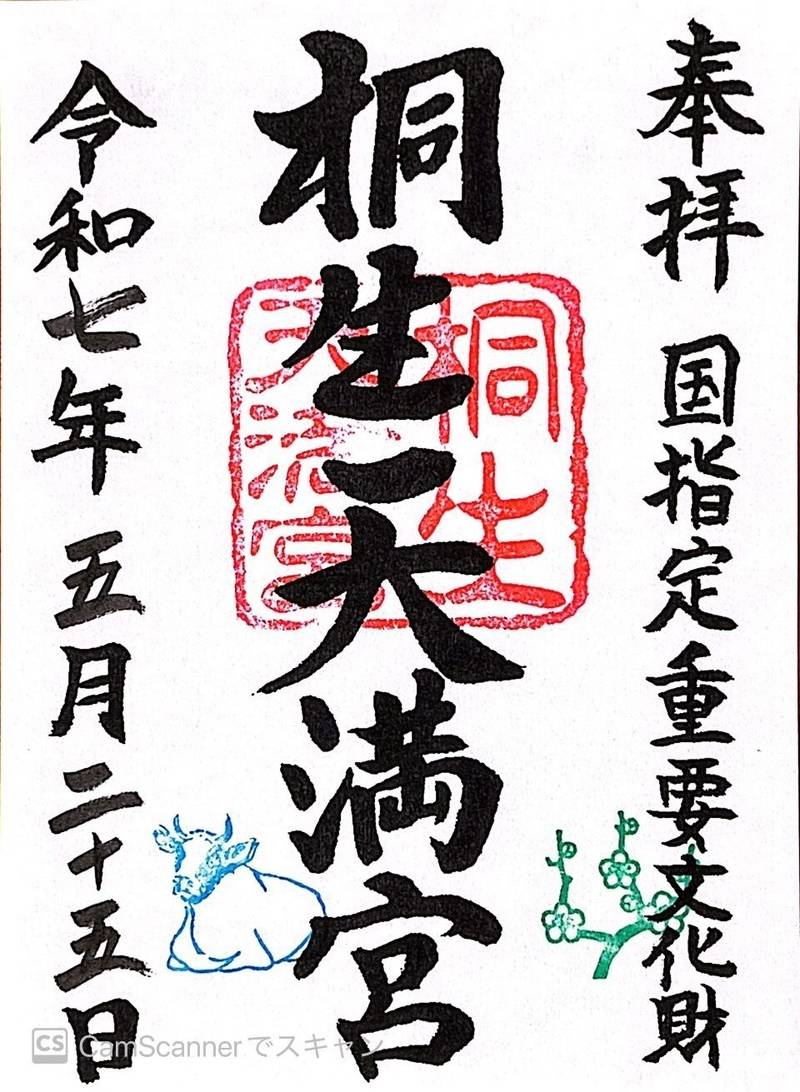 奉拝 国指定重要文化財
桐生天満宮
桐生
天满宮
令和七年 五月二十五日
CS CamScannerでスキャン